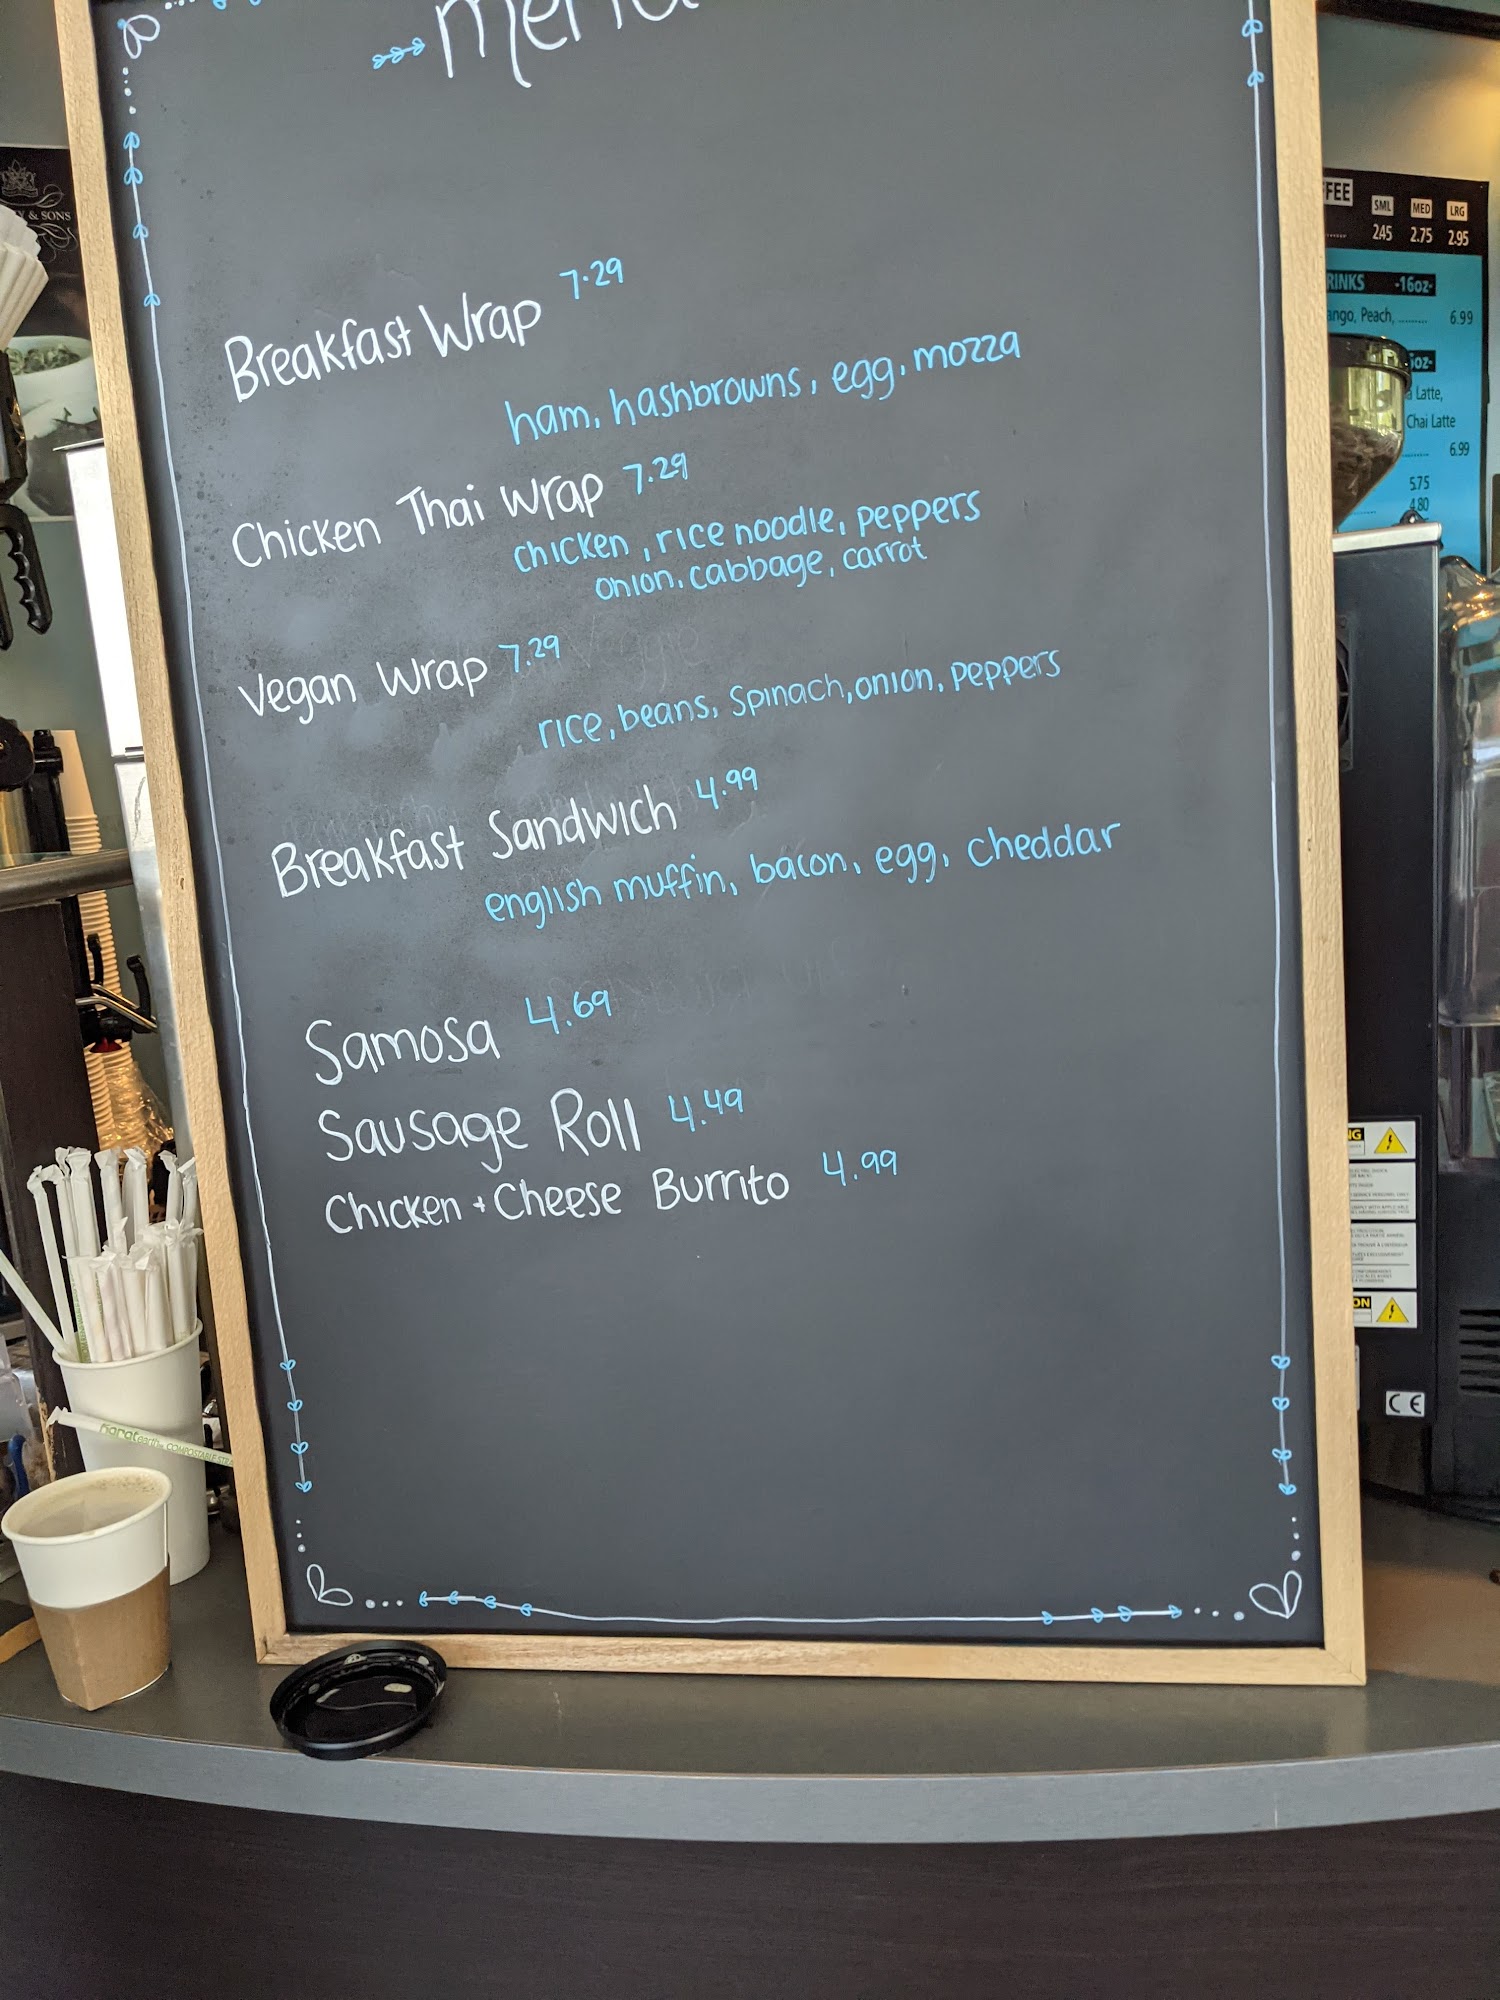 menu
Breakfast Wrap 7.29
ham, hashbrowns, egg, mozza
Chicken Thai Wrap 7.29
chicken, rice noodle, peppers
onion, cabbage, carrot
Vegan Wrap 7.29
rice, beans, spinach, onion, peppers
Breakfast Sandwich 4.99
english muffin, bacon, egg, cheddar
Samosa 4.69
Sausage Roll 4.49
Chicken + Cheese Burrito 4.99
& SONS
FEE SML MED LRG
2.45 2.75 2.95
RINKS -16oz-
ango, Peach, ........ 6.99
oz-
Latte,
Chai Latte
6.99
5.75
4.80
COMPOSTABLE
CE